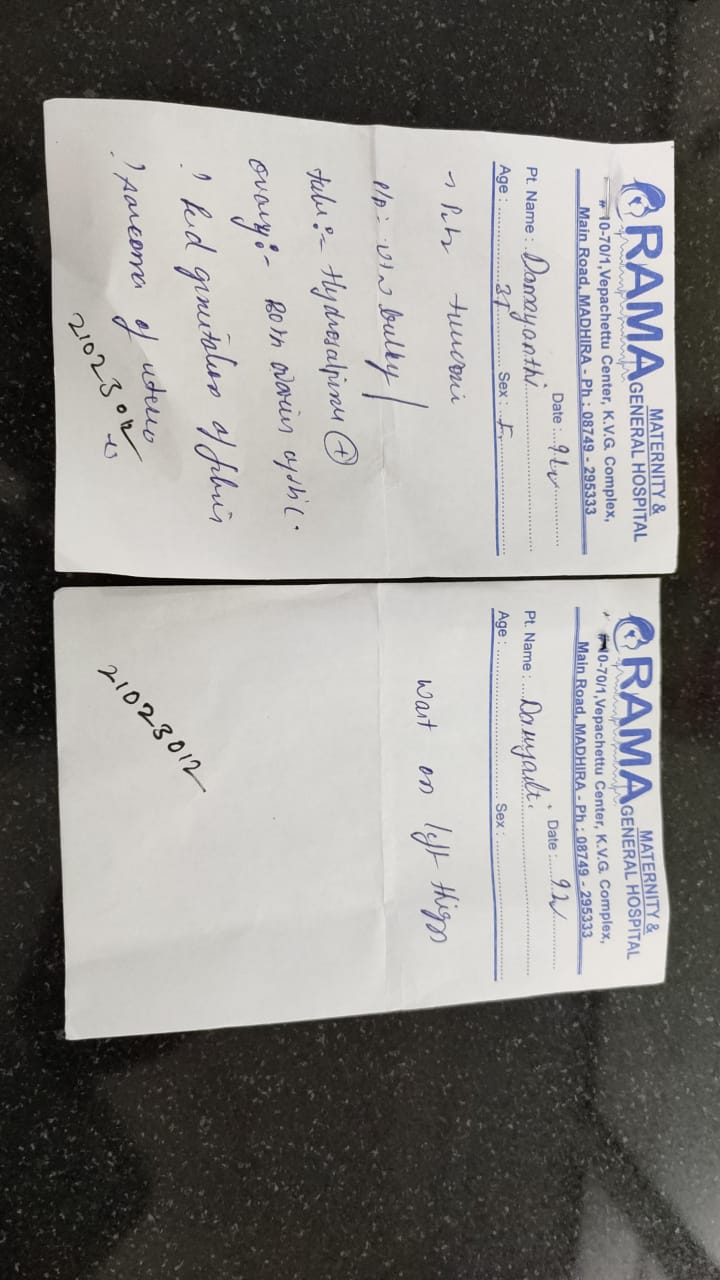 RAMA MATERNITY & GENERAL HOSPITAL
# 10-70/1, Vepachettu Center, K.V.G. Complex,
Main Road, MADHIRA - Ph : 08749 - 295333
Date :
Pt. Name : Damayanthi
Age : 37 Sex : F
bulky
tube:- Hydrosalpinx (+)
ovary:- Both ovaries cystic.
? of pelvis
? sarcoma of uterus
21023012
RAMA MATERNITY & GENERAL HOSPITAL
#10-70/1, Vepachettu Center, K.V.G. Complex,
Main Road, MADHIRA - Ph : 08749 - 295333
Date :
Pt. Name : Damyanti
Age : Sex :
Wart on left thigh
21023012